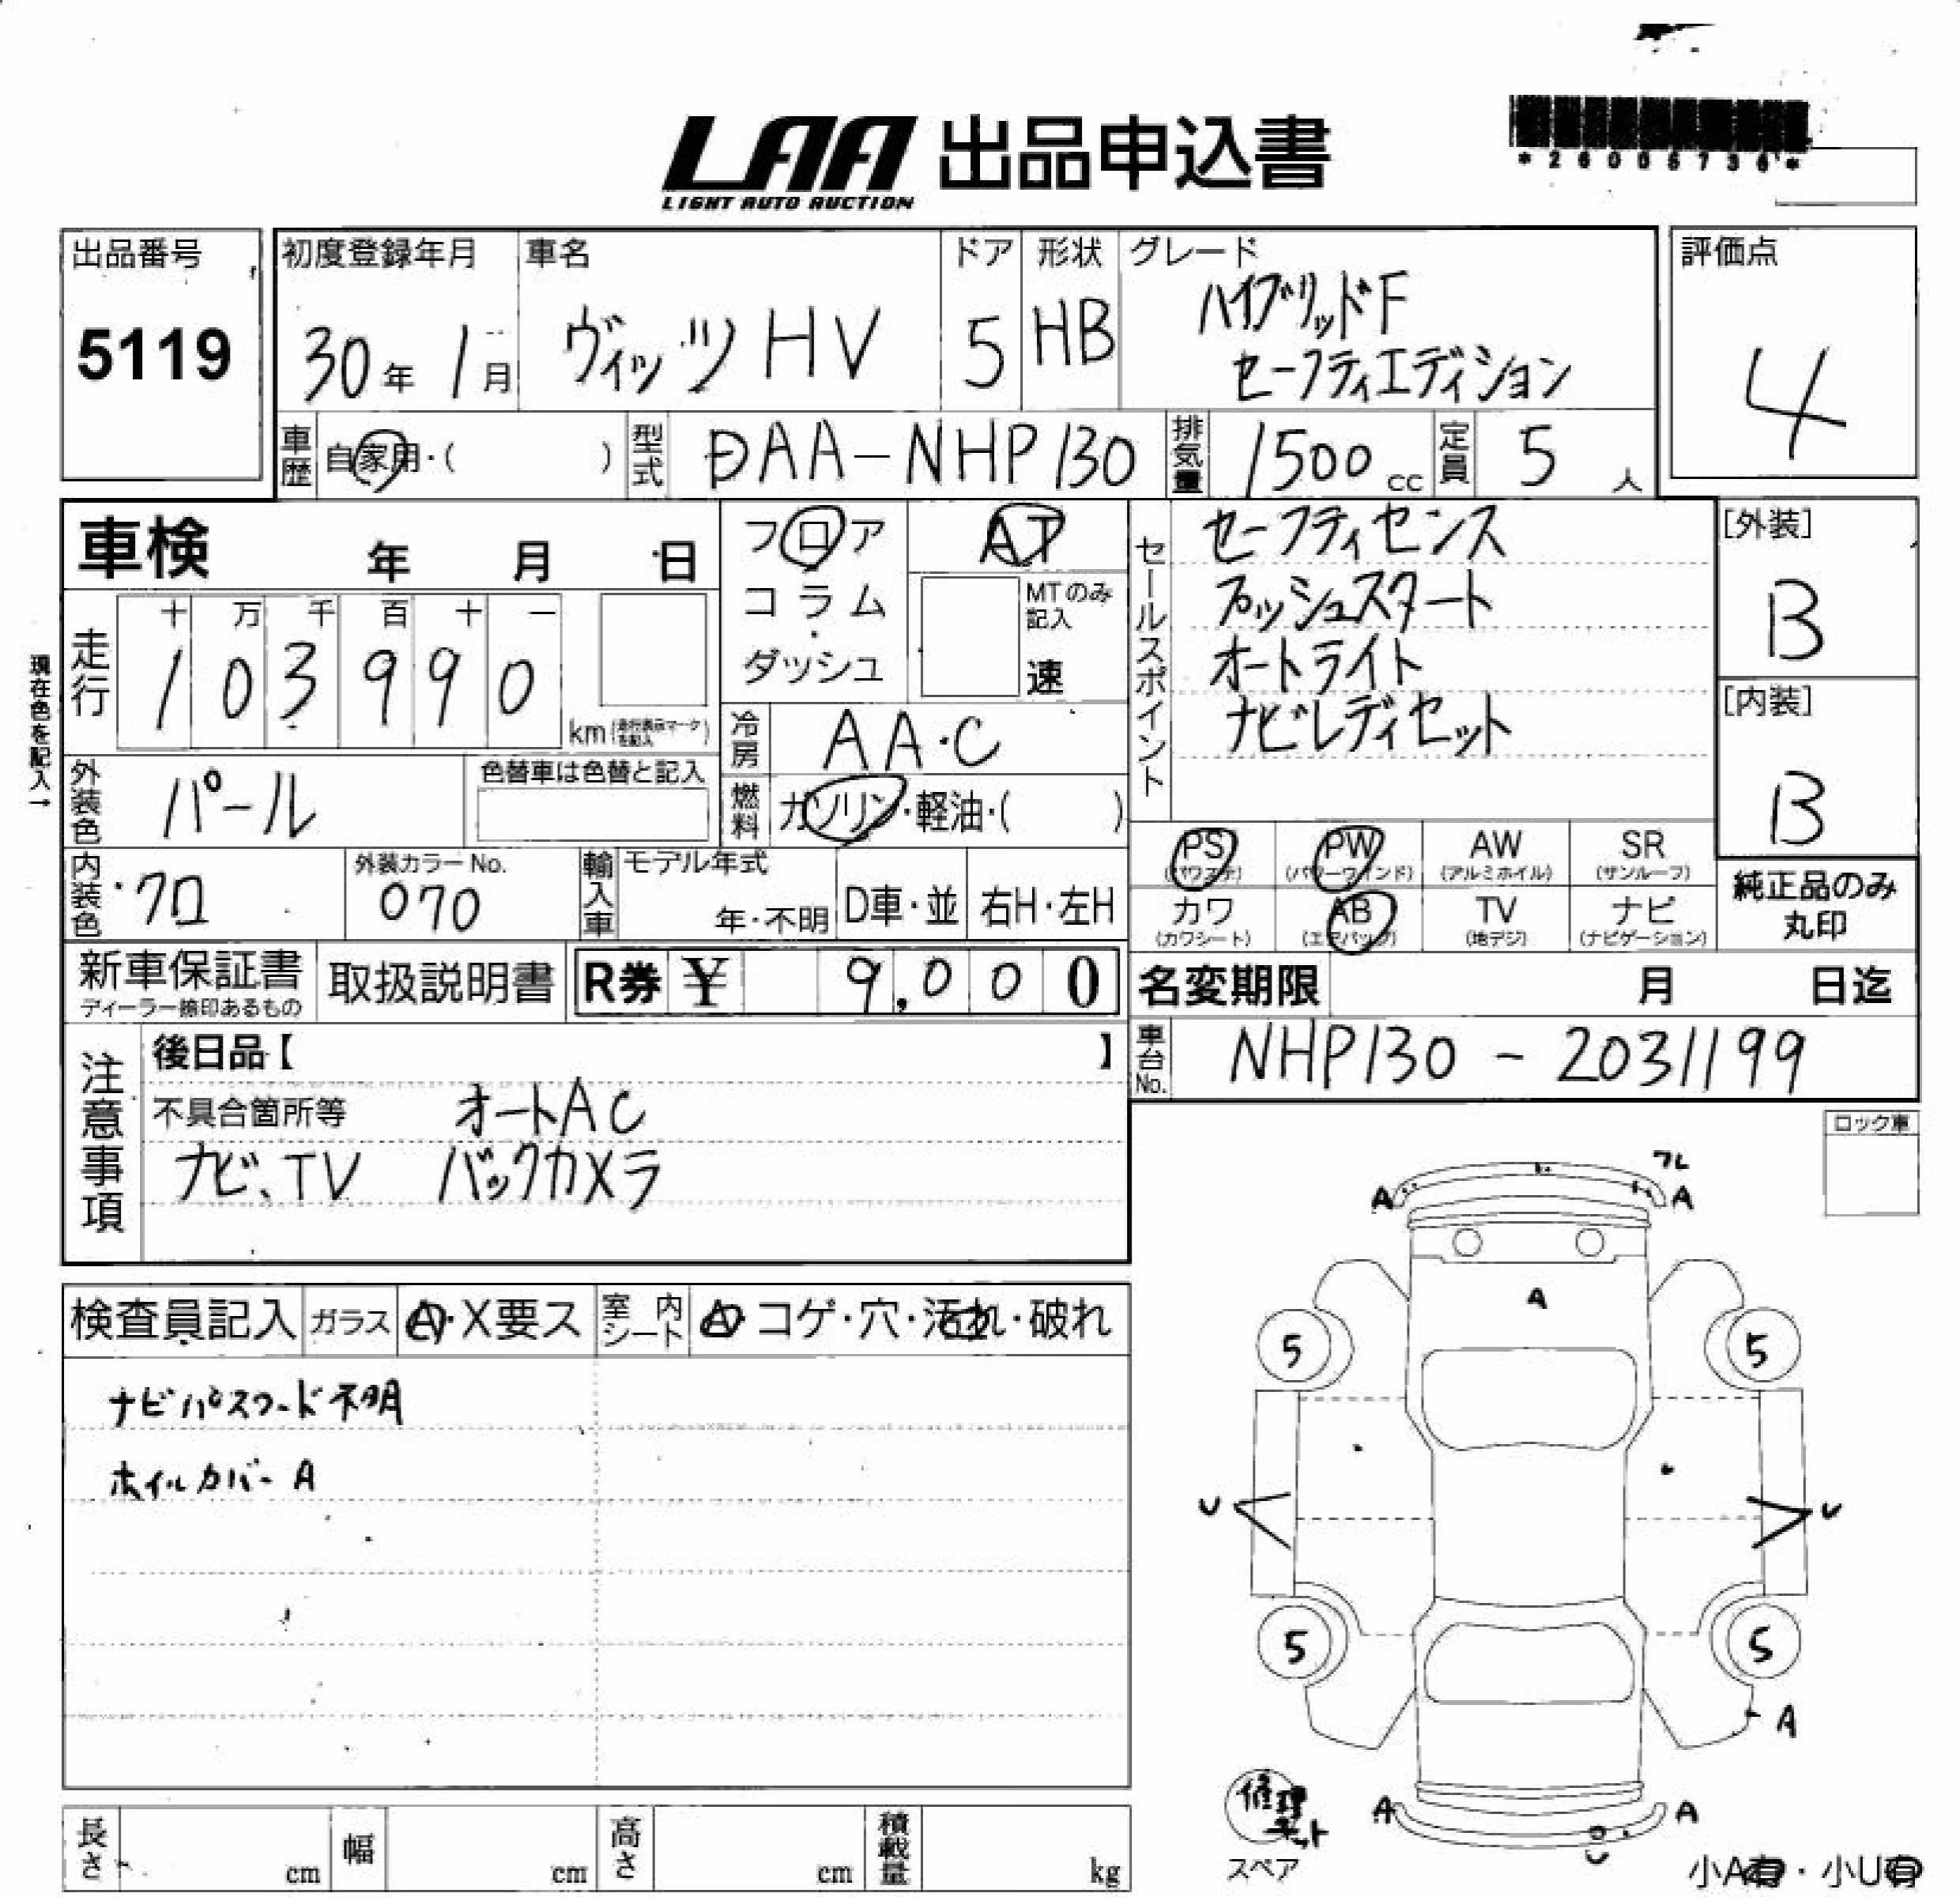 LAA 出品申込書
LIGHT AUTO AUCTION
出品番号
5119
初度登録年月
30年 1月
車名
ヴィッツ HV
ドア
5
形状
HB
グレード
ハイブリッドF
セーフティエディション
評価点
4
車歴
自家用・( )
型式
DAA-NHP130
排気量
1500 cc
定員
5 人
車検 年 月 日
フロア
コラム
・
ダッシュ
AT
MTのみ
記入
速
セールスポイント
セーフティセンス
プッシュスタート
オートライト
ナビレディセット
[外装]
B
[内装]
B
現在色を記入→
走行
十 万 千 百 十 一
1 0 3 9 9 0
km (走行表示マークを記入)
冷房
AA・C
外装色
パール
色替車は色替と記入
燃料
ガソリン・軽油・( )
PS PW AW SR
(パワステ) (パワーウインド) (アルミホイル) (サンルーフ)
カワ AB TV ナビ
(カワシート) (エアバッグ) (地デジ) (ナビゲーション)
純正品のみ
丸印
内装色
クロ
外装カラーNo.
070
輸入車
モデル年式
年・不明
D車・並
右H・左H
新車保証書
ディーラー捺印あるもの
取扱説明書
R券 ¥ 9,000
名変期限 月 日迄
車台No.
NHP130 - 2031199
注意事項
後日品【 】
不具合箇所等 オートAC
ナビ、TV バックカメラ
ロック車
検査員記入
ガラス
A・X要ス
室内シート
A・コゲ・穴・汚れ・破れ
ナビパスワード不明
ホイルカバーA
フレ
A A
A
5 5
U U
5 5
A
A A
U
修理キット
スペア
小A有・小U有
長さ cm
幅 cm
高さ cm
積載量 kg